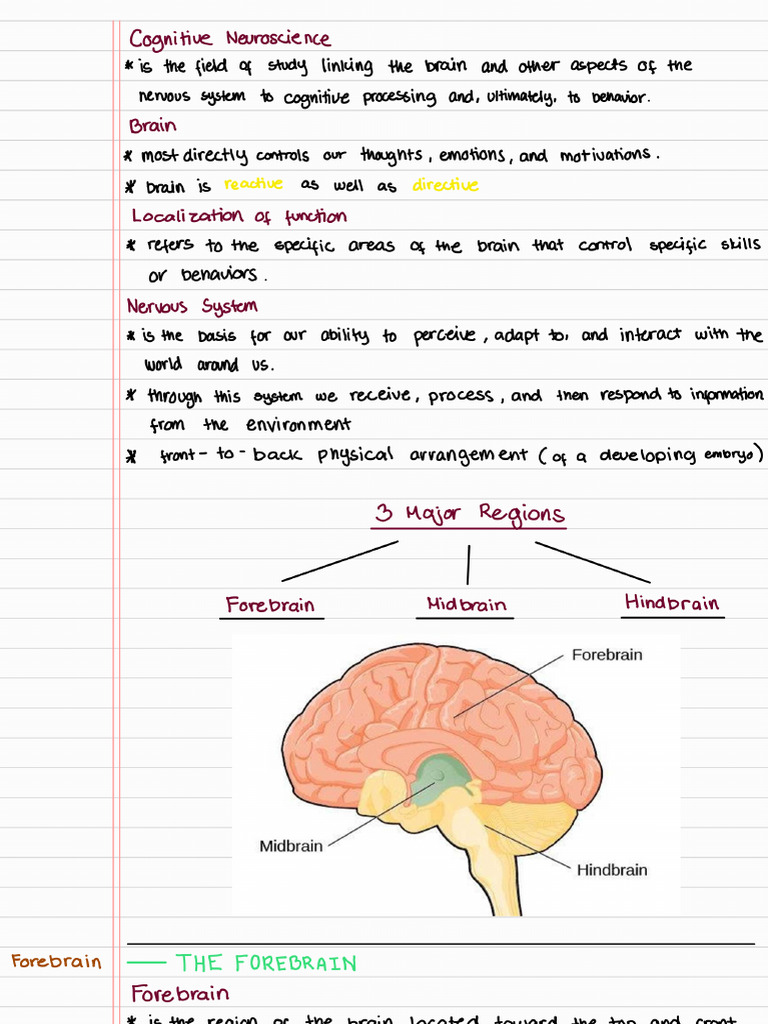 Cognitive Neuroscience
* is the field of study linking the brain and other aspects of the
nervous system to cognitive processing and, ultimately, to behavior.
Brain
* most directly controls our thoughts, emotions, and motivations.
* brain is reactive as well as directive
Localization of function
* refers to the specific areas of the brain that control specific skills
or behaviors.
Nervous System
* is the basis for our ability to perceive, adapt to, and interact with the
world around us.
* through this system we receive, process, and then respond to information
from the environment
* front-to-back physical arrangement (of a developing embryo)
3 Major Regions
Forebrain Midbrain Hindbrain
Forebrain
Midbrain
Hindbrain
Forebrain — THE FOREBRAIN
Forebrain
* is the region of the brain located toward the top and front